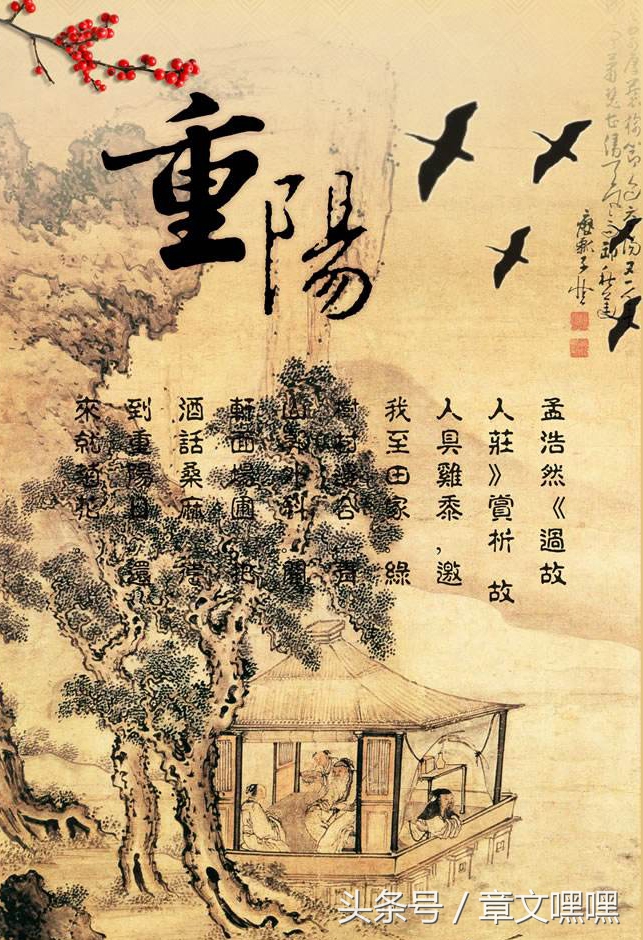 重陽
孟浩然《過故
人莊》賞析 故
人具雞黍,邀
我至田家 綠
樹村邊合 青
山郭外斜 開
軒面場圃 把
酒話桑麻 待
到重陽日 還
來就菊花
头条号 / 章文嘿嘿